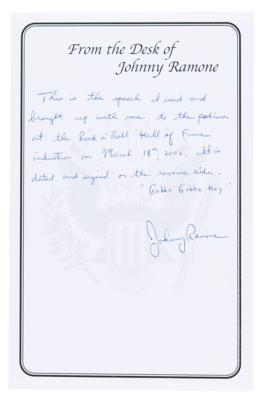 From the Desk of
Johnny Ramone
This is the speech I used and
brought up with me to the podium
at the Rock n' Roll Hall of Fame
induction on March 18th, 2002, it is
dated and signed on the reverse side.
"Gabba Gabba Hey"
Johnny Ramone